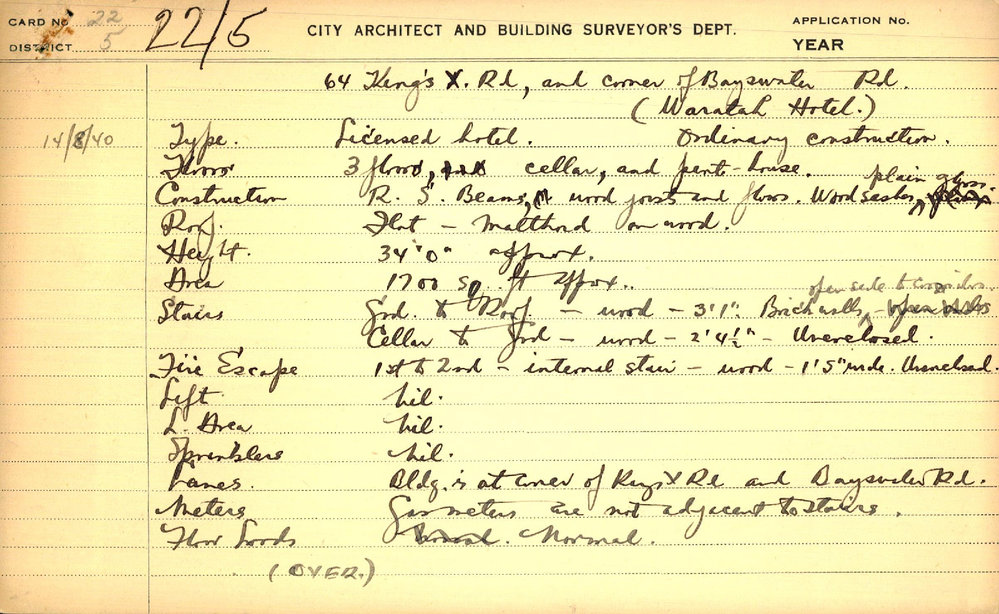 CARD No 22 22/5 CITY ARCHITECT AND BUILDING SURVEYOR'S DEPT. APPLICATION No.
DISTRICT 5 YEAR
64 King's X. Rd, and corner of Bayswater Rd.
(Waratah Hotel.)
14/8/40 Type. Licensed hotel. Ordinary construction.
Floors 3 floors, cellar, and pent-house.
plain glass.
Construction R. S. Beams, wood joists and floors. Wood sashes,
Roof. Flat – Malthoid on wood.
Height. 34'0" approx.
Area 1700 sq. ft approx..
open side to corridors.
Stairs Grd. to Roof – wood – 3'1". Brick walls,
Cellar to Grd – wood – 2'4½" – Unenclosed.
Fire Escape 1st to 2nd – internal stair – wood – 1'5" wide. Unenclosed.
Lift nil.
L. Area nil.
Sprinklers nil.
Lanes. Bldg. is at corner of Kings X Rd and Bayswater Rd.
Meters Gas meters are not adjacent to stairs.
Floor Loads Normal.
(OVER.)